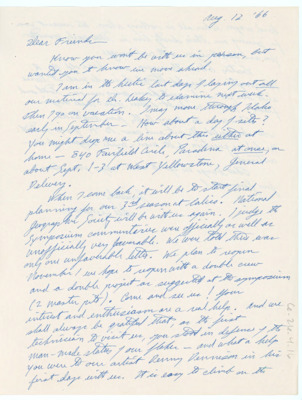 Aug 12 '66
Dear Friends -
Know you won't be with us in person, but
want you to know we move ahead.
I am in the hectic last days of laying out all
our material for Dr. Leakey to examine next week.
Then I go on vacation. I may move through Idaho
early in September. How about a day of sets?
You might drop me a line about this either at
home - 540 Fairfield Circle, Pasadena at once, or
about Sept. 1-3 at West Yellowstone, General
Delivery.
When I come back, it will be to start final
planning for our 3rd season at Calico. National
Geographic Society will be with us again. I judge the
Symposium commentaries were officially as well as
unofficially very favorable. We were told there was
only one unfavorable letter. We plan to reopen
November 1 we hope to reopen with a double crew
and a double project as suggested at the symposium
(2 master pits). Come and see us! Your
interest and enthusiasm are a real help. And we
shall always be grateful that, as the first
technician to visit us, you in defense of the
man-made status of our flakes - and what a help
you were to our artist Penny Dennison in his
first days with us. It is easy to climb on the